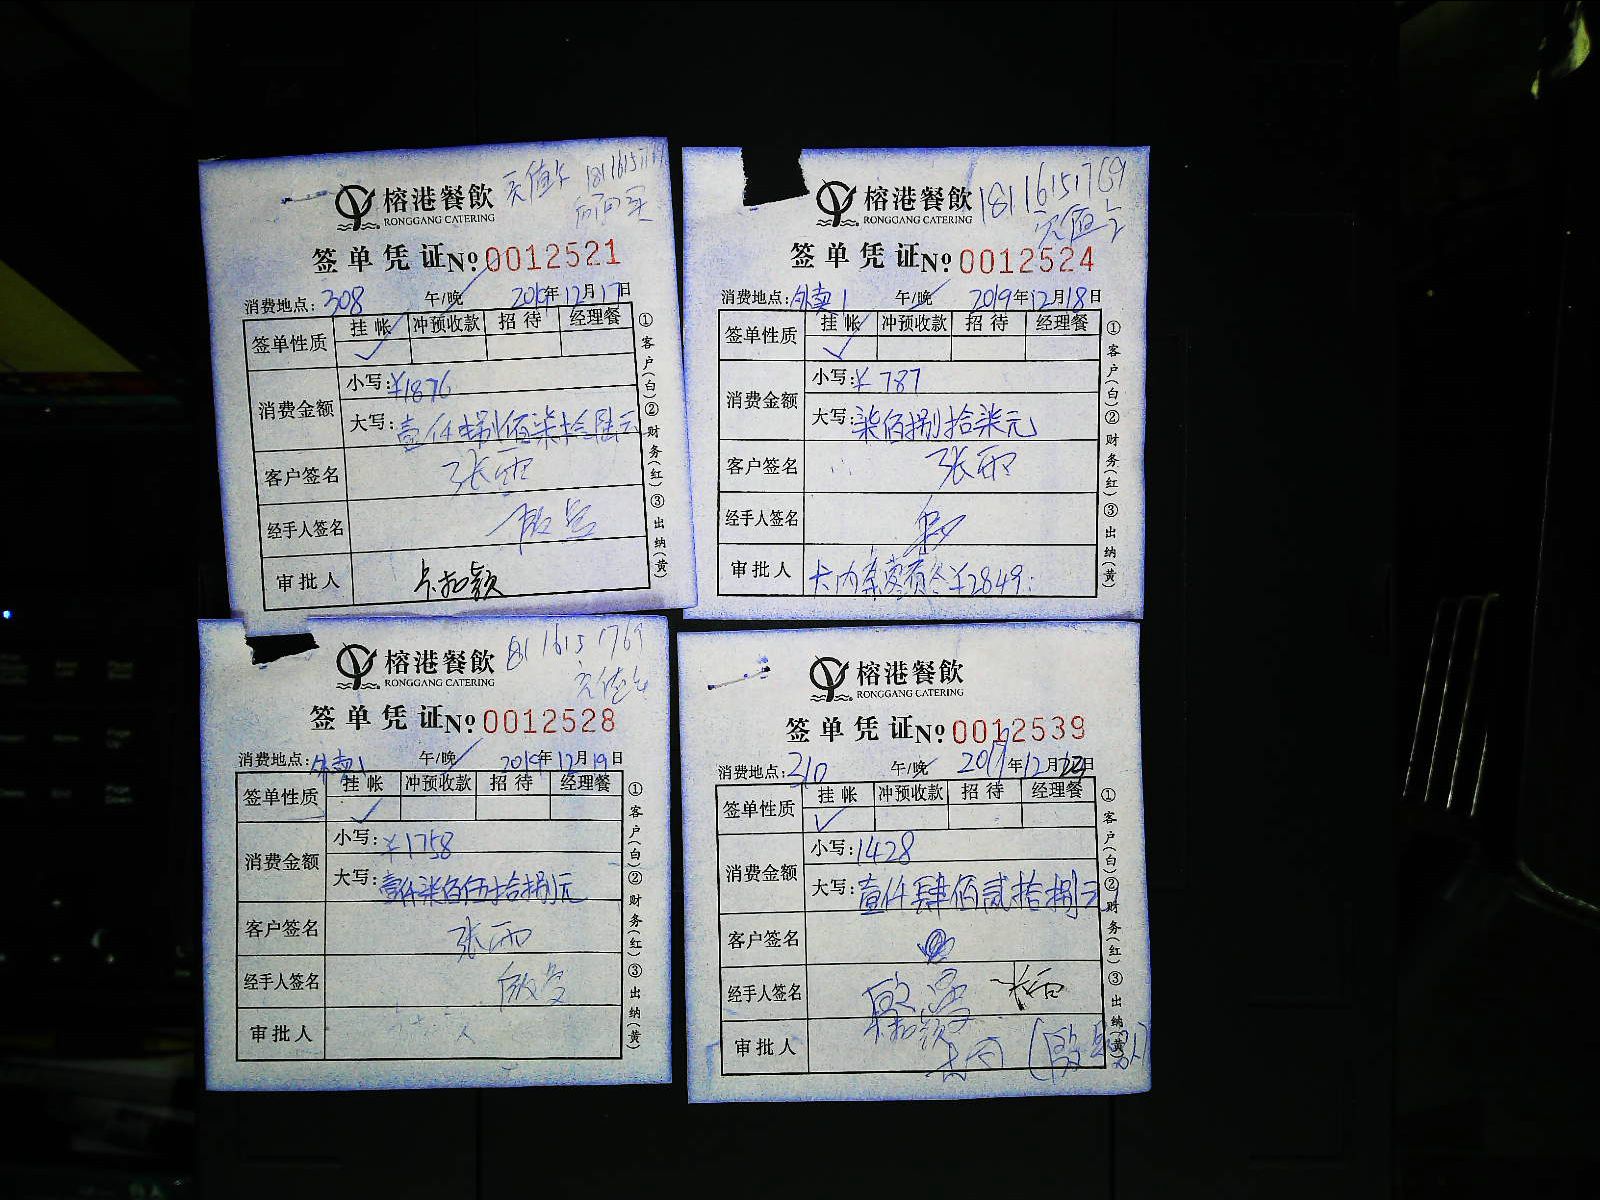 榕港餐飲
RONGGANG CATERING
充值卡 18116151769
签单凭证 No 0012521
消费地点: 308 午/晚 2019年12月17日
签单性质 挂帐 冲预收款 招待 经理餐
✓
消费金额 小写: ¥1876
大写: 壹仟捌佰柒拾陆元
客户签名 张雨
经手人签名
审批人
①客户(白)②财务(红)③出纳(黄)
榕港餐飲
RONGGANG CATERING
18116151769
充值卡
签单凭证 No 0012524
消费地点: 外卖1 午/晚 2019年12月18日
签单性质 挂帐 冲预收款 招待 经理餐
✓
消费金额 小写: ¥787
大写: 柒佰捌拾柒元
客户签名 张雨
经手人签名
审批人 卡内 ¥2849
①客户(白)②财务(红)③出纳(黄)
榕港餐飲
RONGGANG CATERING
18116151769
充值卡
签单凭证 No 0012528
消费地点: 外卖1 午/晚 2019年12月19日
签单性质 挂帐 冲预收款 招待 经理餐
✓
消费金额 小写: ¥1758
大写: 壹仟柒佰伍拾捌元
客户签名 张雨
经手人签名
审批人
①客户(白)②财务(红)③出纳(黄)
榕港餐飲
RONGGANG CATERING
签单凭证 No 0012539
消费地点: 310 午/晚 2019年12月 日
签单性质 挂帐 冲预收款 招待 经理餐
✓
消费金额 小写: 1428
大写: 壹仟肆佰贰拾捌元
客户签名
经手人签名
审批人
①客户(白)②财务(红)③出纳(黄)